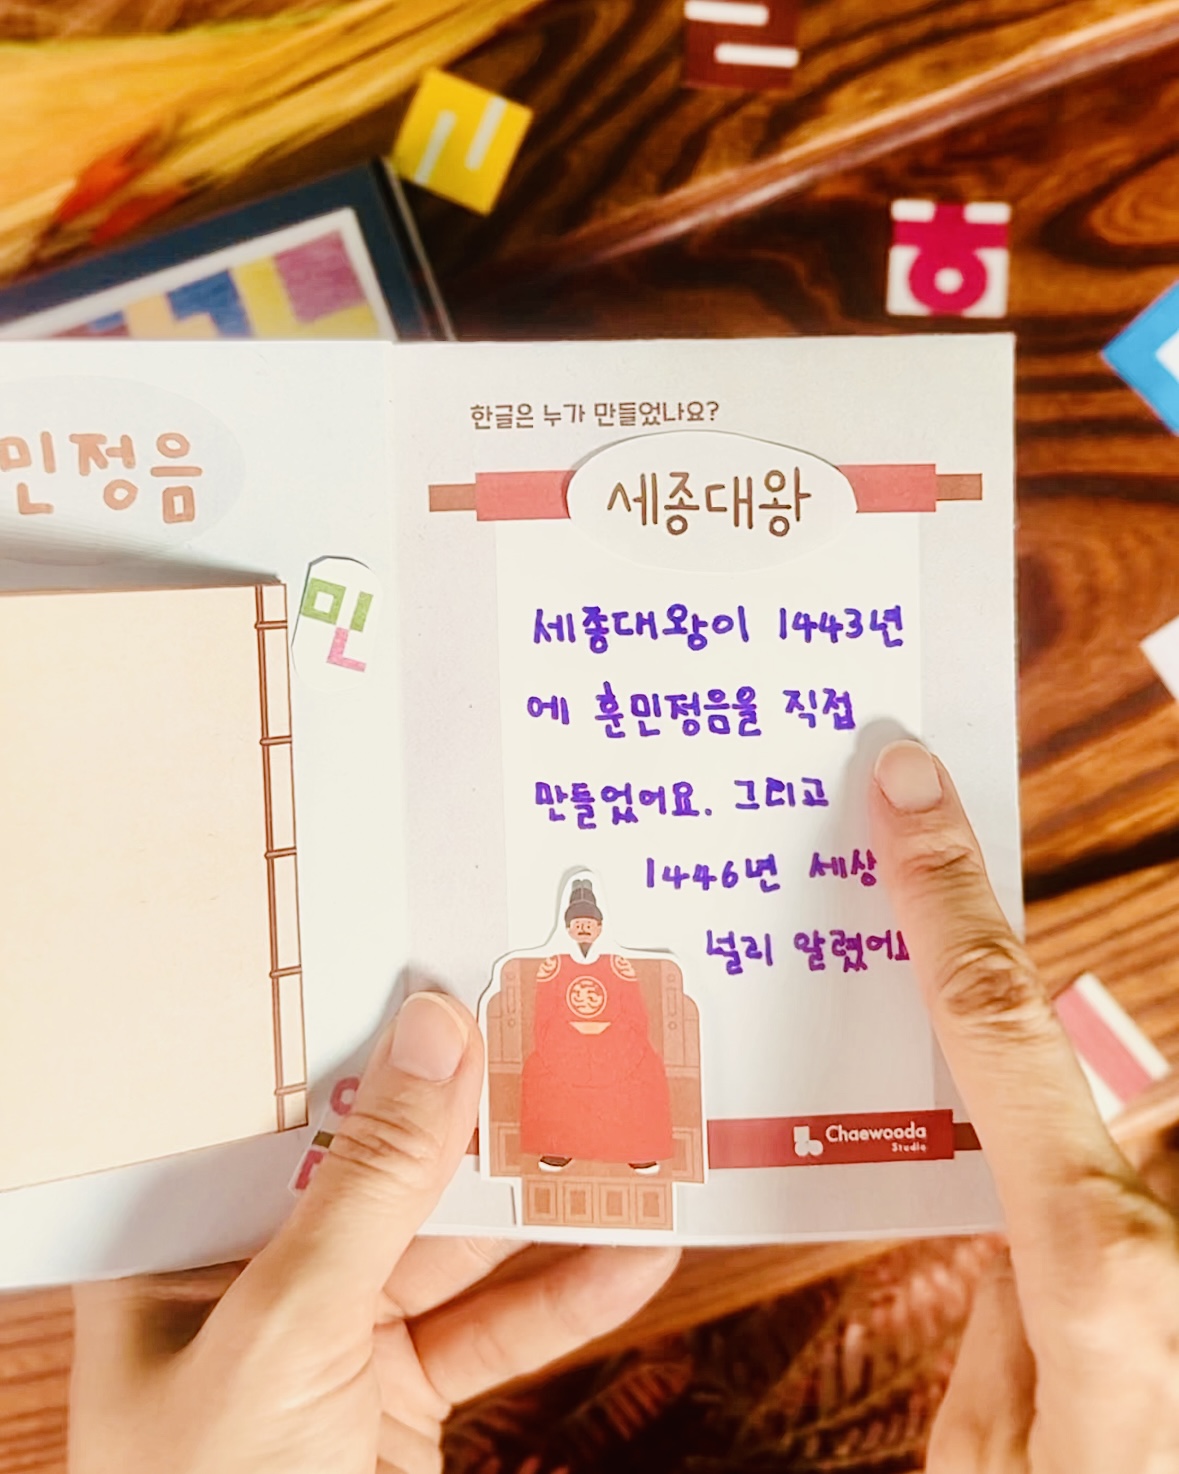 민정음
민
한글은 누가 만들었나요?
세종대왕
세종대왕이 1443년
에 훈민정음을 직접
만들었어요. 그리고
1446년 세상
널리 알렸어요
Chaewooda
Studio